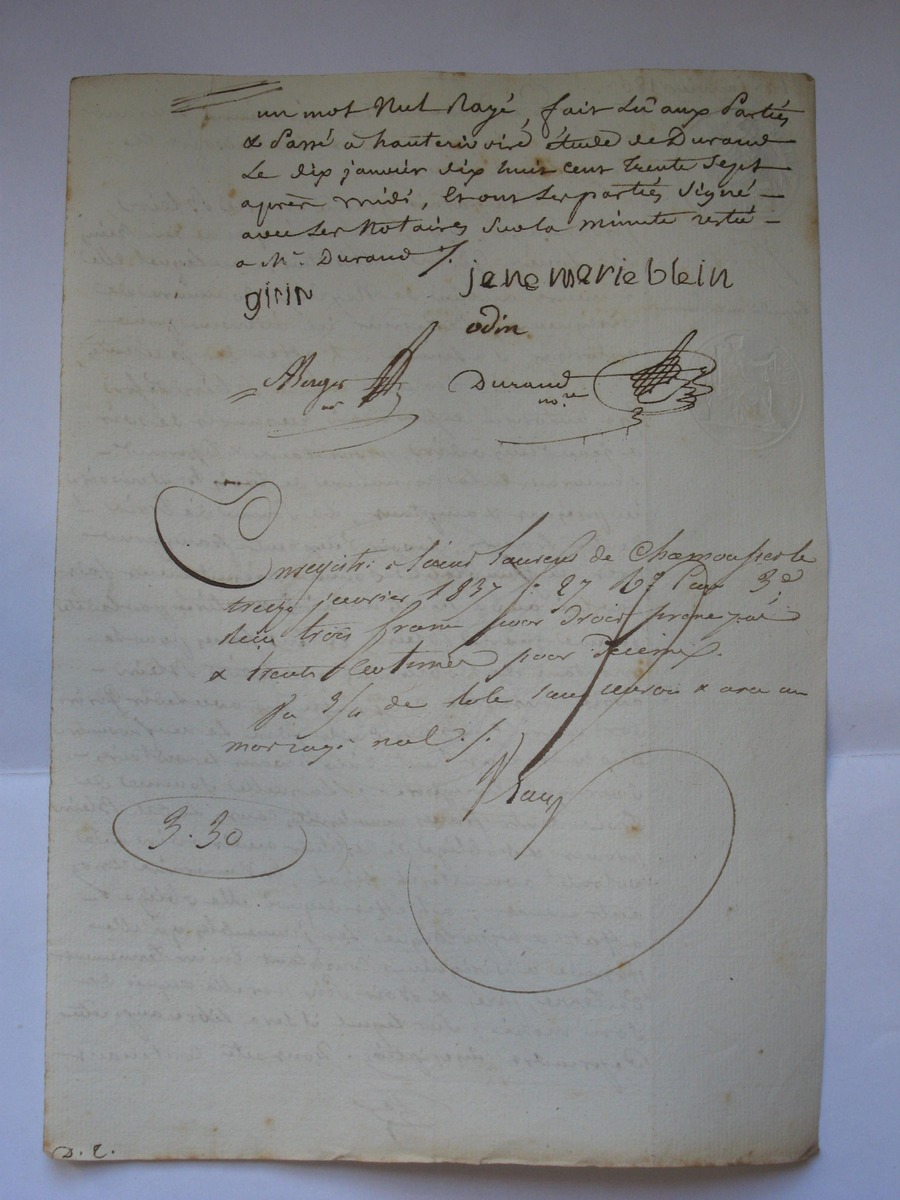 un mot Nul Rayé, fait Lû aux Partiés
& Passé a hauterivoire étude de Durand
Le dix janvier dix huit cent trente Sept
aprèr midi, Et ont Les partiés Signé
avec Les Notaires Sur la minute restée
a Me. Durand /.
girin
jane marie blein
odin
ABerger
Durand
no.re
Enregistré a Saint Laurent de Chamousset le
treize janvier 1837 fo. 27 Co. 3e.
reçu trois francs pour droit
& trente centimes pour decime.
de Role
mot rayé nul /.
3.30
D. R.